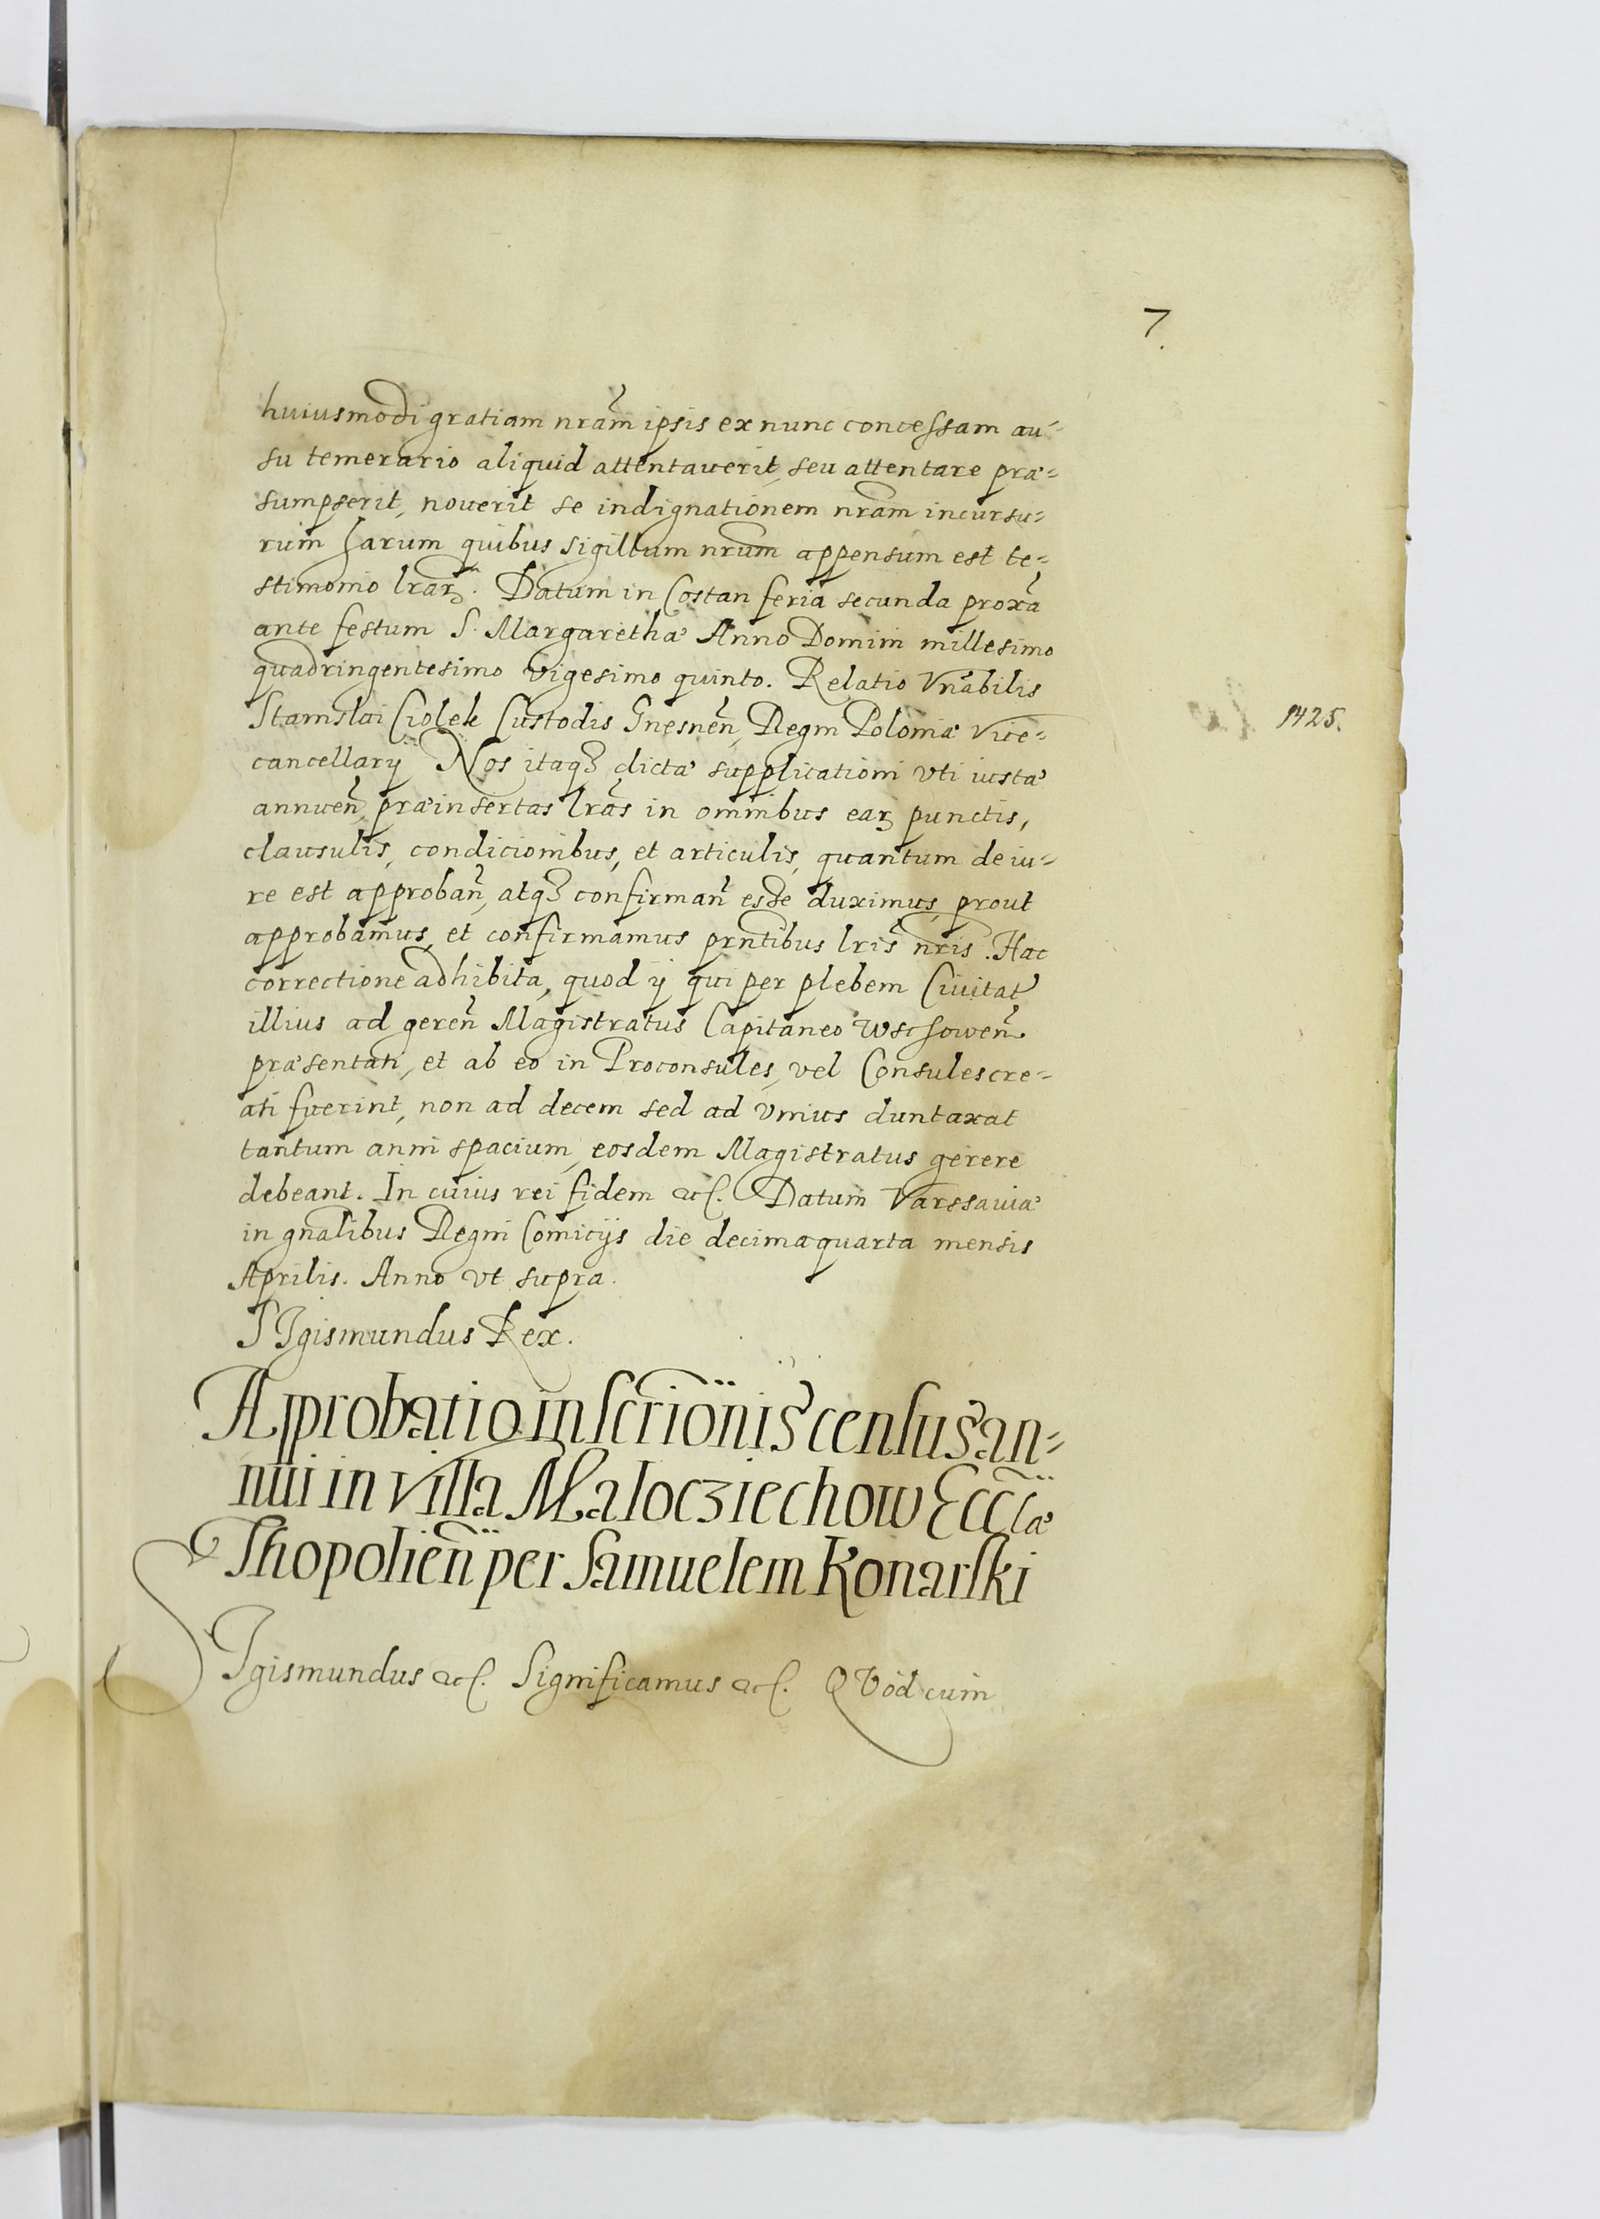 7.
huiusmodi gratiam nrãm ipsis ex nunc concessam au-
su temerario aliquid attentauerit, seu attentare præ-
sumpserit, nouerit se indignationem nrãm incursu-
rum harum quibus sigillum nrũm appensum est te-
stimonio lrar̃. Datum in Costan feria secunda proxã
ante festum S. Margarethæ Anno Domini millesimo
quadringentesimo vigesimo quinto. Relatio Vnãbilis
Stanislai Ciolek Custodis Gnesneñ, Regni Poloniæ Vice-
cancellarij Nos itaqȝ dictæ supplicationi vti iustæ
annueñ, præinsertas lrãs in omnibus ear punctis,
clausulis, condicionibus, et articulis, quantum de iu-
re est approbañ, atqȝ confirmañ esse duximus, prout
approbamus, et confirmamus prñtibus lrĩs nrĩs. Hac
correctione adhibita, quod ij qui per plebem Ciuitat
illius ad gereñ Magistratus Capitaneo Wschoweñ
præsentati, et ab eo in Proconsules, vel Consules cre-
ati fuerint, non ad decem sed ad vnius duntaxat
tantum anni spacium, eosdem Magistratus gerere
debeant. In cuius rei fidem &c. Datum Varssauiæ
in gñalibus Regni Comicijs die decimaquarta mensis
Aprilis. Anno vt supra.
1425.
SIgismundus Rex.
Approbatio inscriõnis census an-
nui in villa Malocziechow Ecclæ
Thopolieñ per Samuelem Konarski
SIgismundus &c. Significamus &c. QVod cum